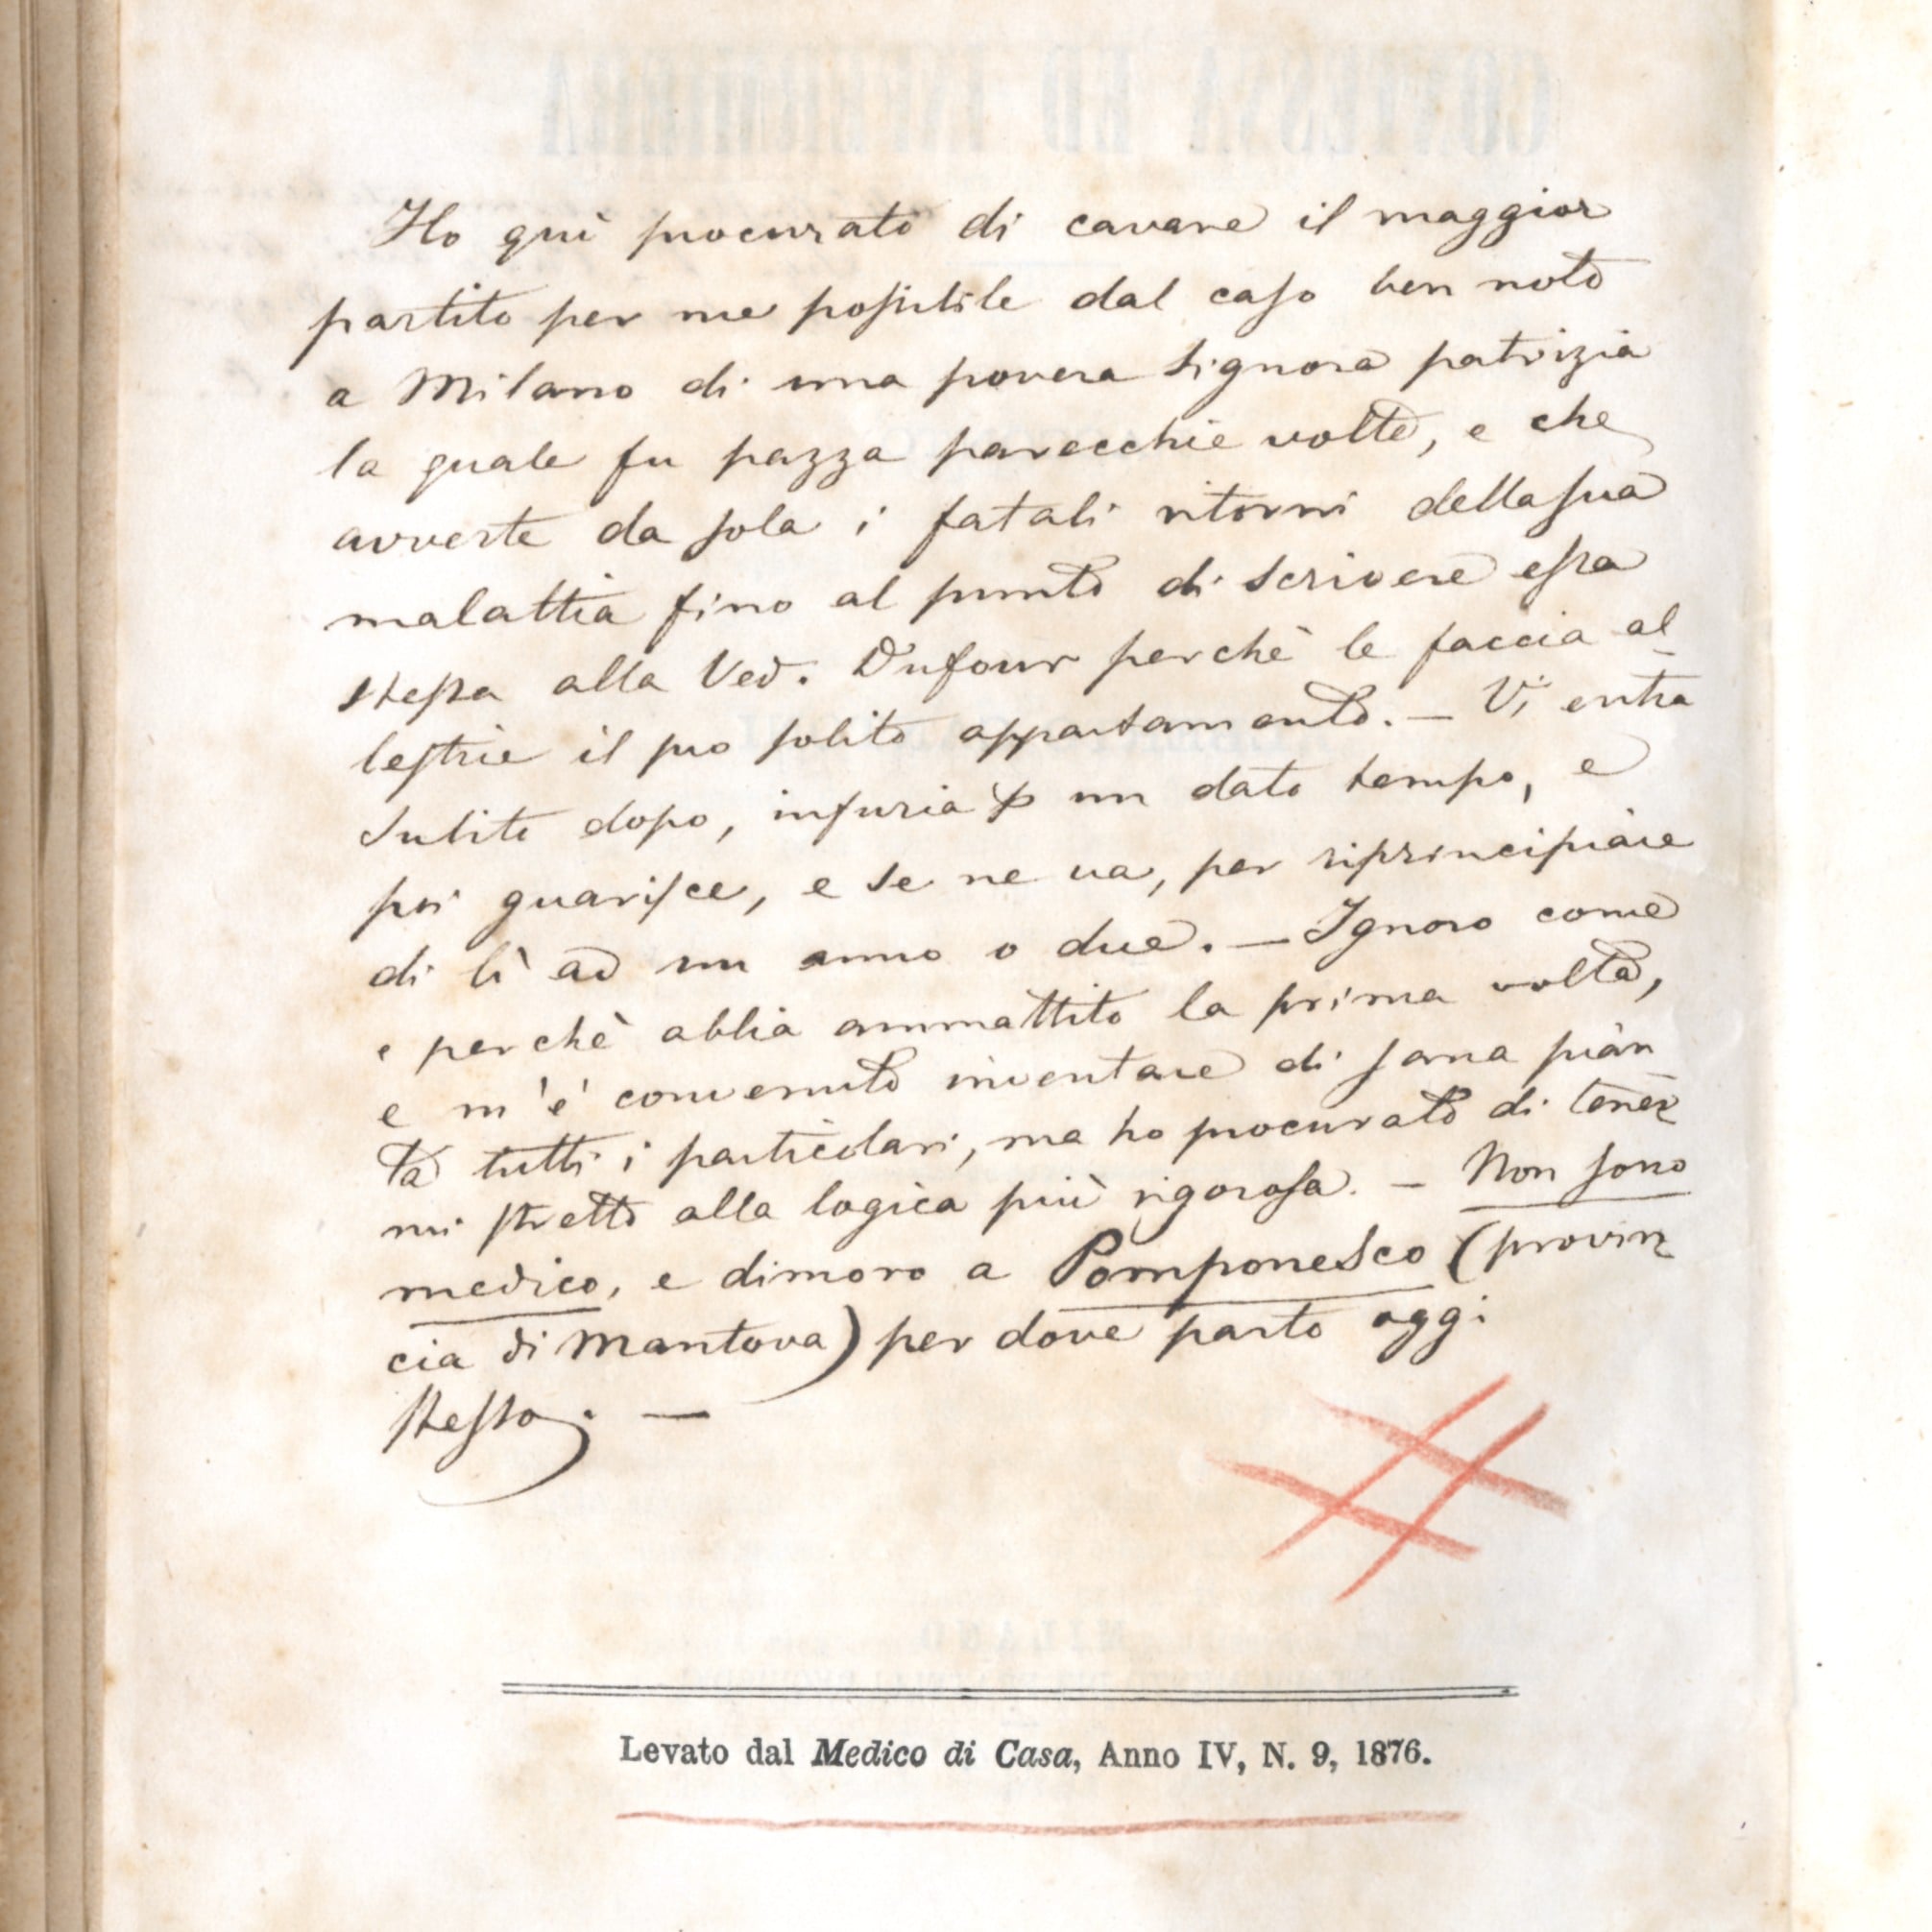 Ho quì procurato di cavare il maggior
partito per me possibile dal caso ben noto
a Milano di una povera signora patrizia
la quale fu pazza parecchie volte, e che
avverte da sola i fatali ritorni della sua
malattia fino al punto di scrivere essa
stessa alla Ved. Dufour perchè le faccia al-
lestrie il suo solito appartamento. — Vi entra
subito dopo, infuria p un dato tempo, e
poi guarisce, e se ne va, per riprincipiare
di lì ad un anno o due. — Ignoro come
e perchè abbia ammattito la prima volta,
e m'è convenuto inventare di sana pian
ta tutti i particolari, ma ho procurato di tener
mi stretto alla logica più rigorosa. — Non sono
medico, e dimoro a Pomponesco (provin
cia di Mantova) per dove parto oggi
stesso. —
Levato dal Medico di Casa, Anno IV, N. 9, 1876.